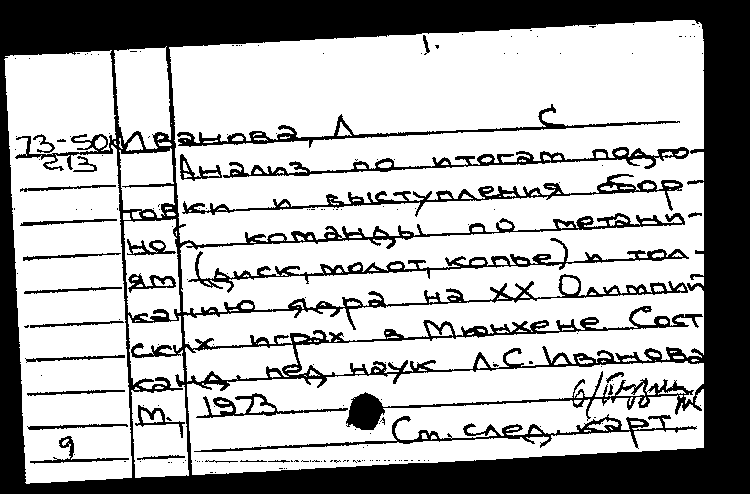 1.
73-50к Иванова, Л С
213 Анализ по итогам подго-
товки и выступления сбор-
ной команды по метани-
ям (диск, молот, копье) и тол-
канию ядра на XX Олимпий
ских играх в Мюнхене. Сост
канд. пед. наук Л.С. Иванова
М., 1973
9 См. след. карт.